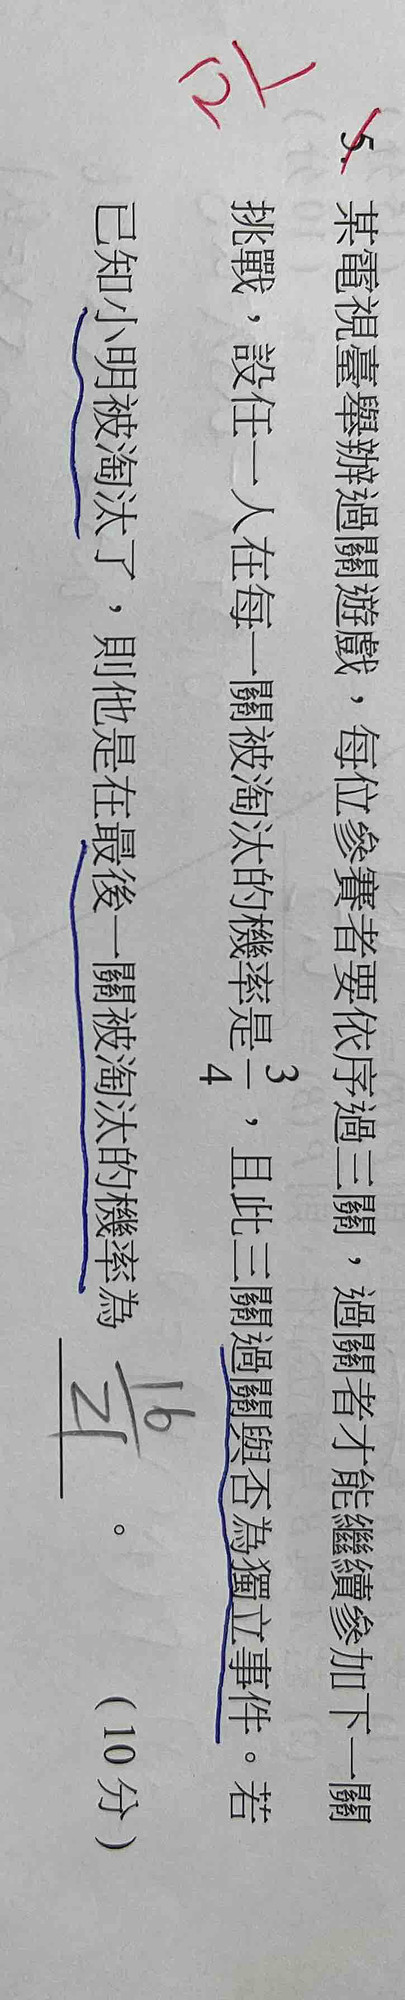 5. 某電視臺舉辦過關遊戲，每位參賽者要依序過三關，過關者才能繼續參加下一關
1/21
挑戰，設任一人在每一關被淘汰的機率是3/4，且此三關過關與否為獨立事件。若
已知小明被淘汰了，則他是在最後一關被淘汰的機率為 16/21 。 (10分)